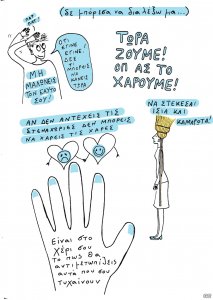 (δε μπόρεσα να διαλέξω μια...)
ΤΩΡΑ
ΖΟΥΜΕ!
ΑΣ ΤΟ
ΧΑΡΟΥΜΕ!
ΟΤΙ
ΕΓΙΝΕ
ΕΓΙΝΕ
ΔΕΝ
ΜΠΟΡΕΙΣ
ΝΑ ΚΑΝΕΙΣ
ΜΗ
ΜΑΛΩΝΕΙΣ
ΤΟΝ ΕΑΥΤΟ
ΣΟΥ!
ΝΑ ΣΤΕΚΕΣΑΙ
ΙΣΙΑ ΚΑΙ
ΚΑΜΑΡΩΤΑ!
ΑΝ ΔΕΝ ΑΝΤΕΧΕΙΣ ΤΙΣ
ΣΤΕΝΑΧΩΡΙΕΣ ΔΕΝ ΜΠΟΡΕΙΣ
ΝΑ ΧΑΡΕΙΣ ΤΙΣ ΧΑΡΕΣ
Είναι στο
χέρι σου
το πως θα
αντιμετωπίζεις
αυτά που σου
τυχαίνουν